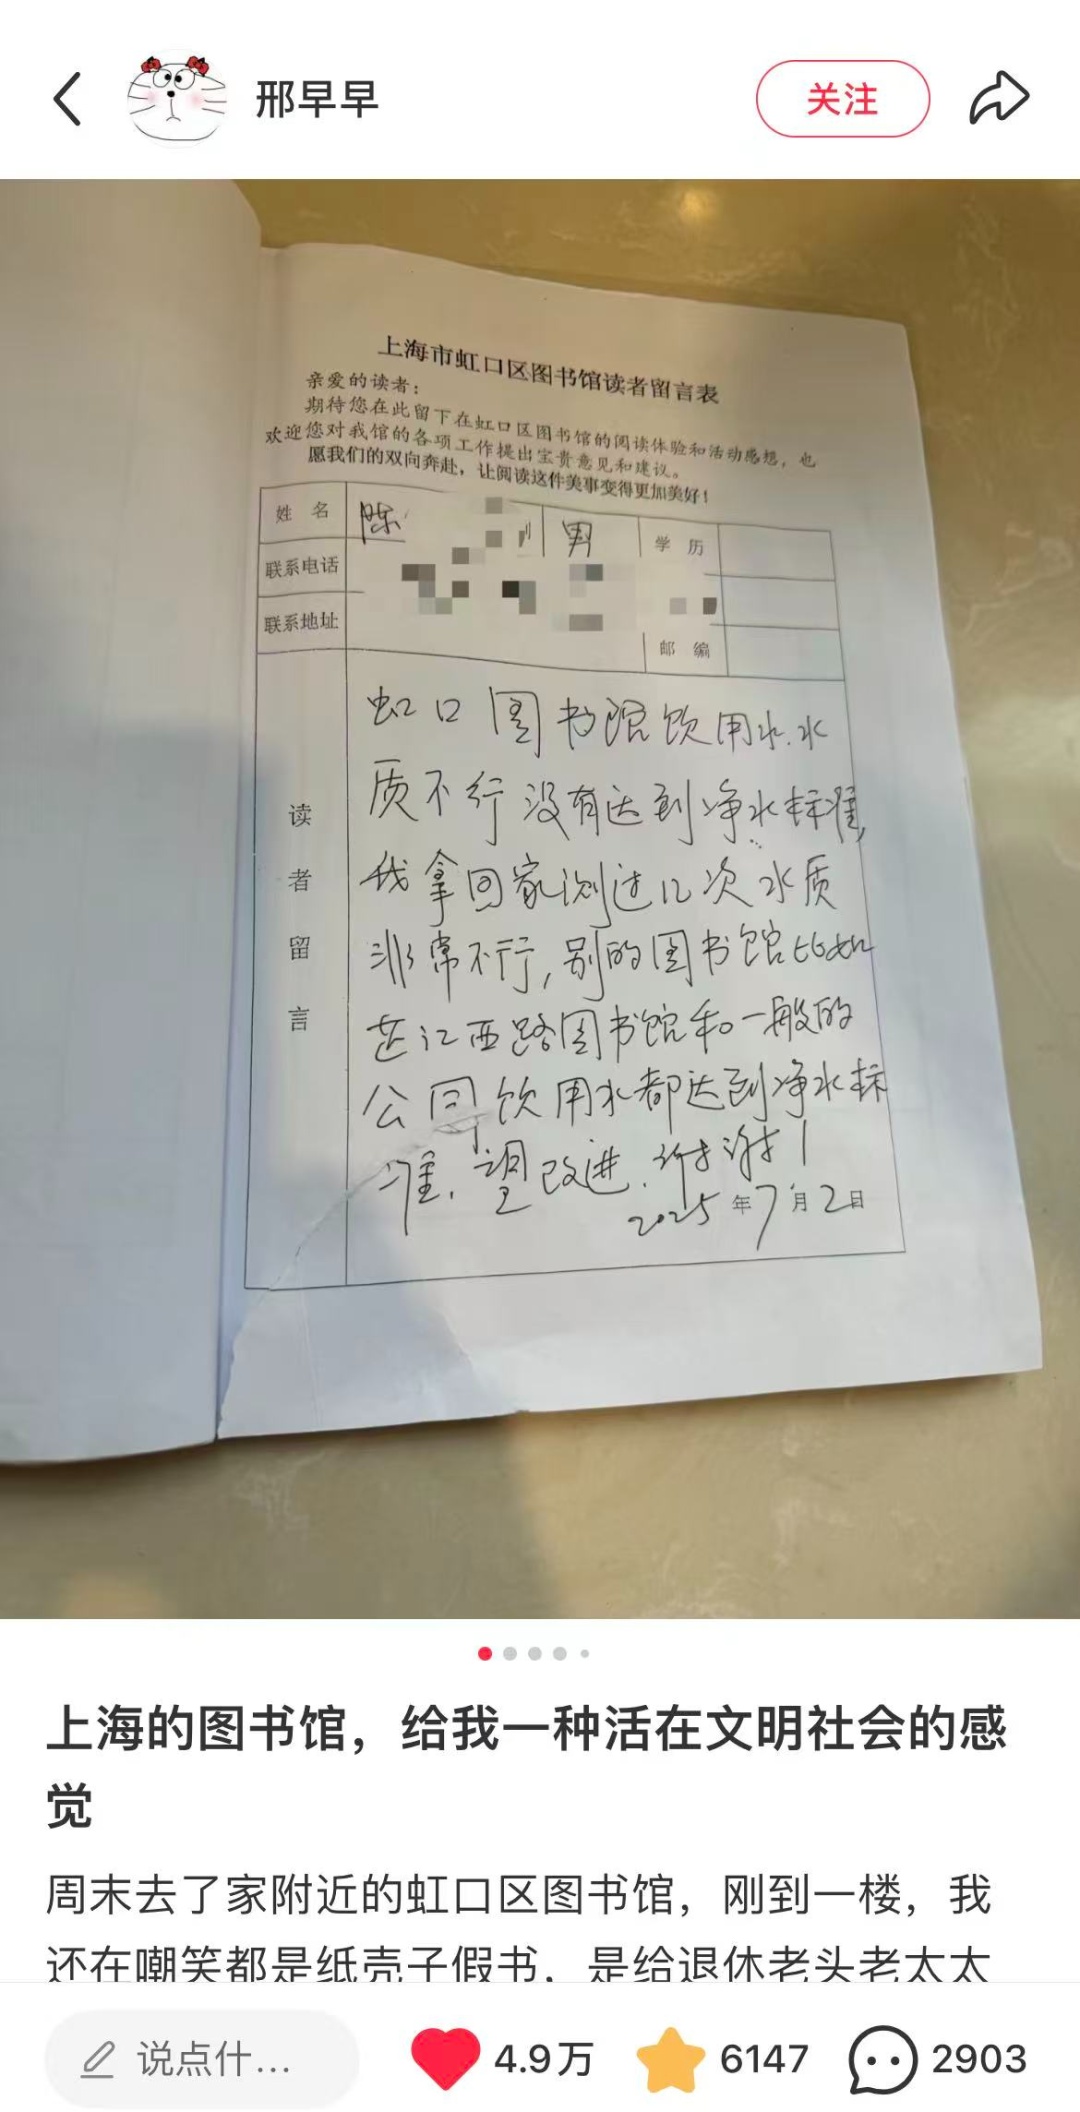 邢早早
关注
上海市虹口区图书馆读者留言表
亲爱的读者：
期待您在此留下在虹口区图书馆的阅读体验和活动感想，也
欢迎您对我馆的各项工作提出宝贵意见和建议。
愿我们的双向奔赴，让阅读这件美事变得更加美好！
姓 名 陈 男 学 历
联系电话
联系地址
邮 编
读者留言
虹口图书馆饮用水.水
质不行没有达到净水标准,
我拿回家测过几次水质
非常不行,别的图书馆比如
芷江西路图书馆和一般的
公园饮用水都达到净水标
准.望改进.谢谢!
2025年7月2日
上海的图书馆，给我一种活在文明社会的感
觉
周末去了家附近的虹口区图书馆，刚到一楼，我
还在嘲笑都是纸壳子假书，是给退休老头老太太
说点什...
4.9万
6147
2903